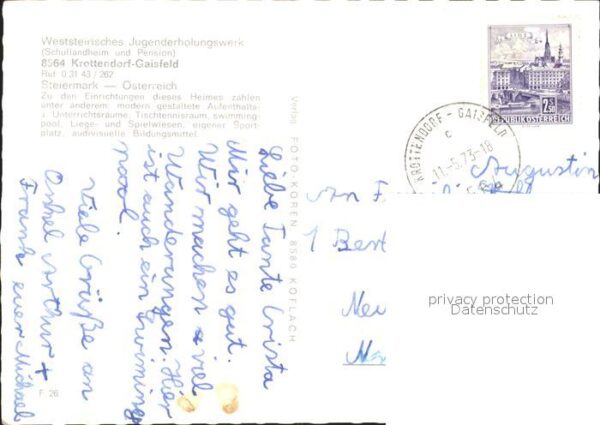 Weststeirisches Jugenderholungswerk
(Schullandheim und Pension)
8564 Krottendorf-Gaisfeld
Ruf 0 31 43 / 262
Steiermark — Österreich
Zu den Einrichtungen dieses Heimes zählen
unter anderem: modern gestaltete Aufenthalts-
u Unterrichtsräume, Tischtennisraum, swimming
pool, Liege- und Spielwiesen, eigener Sport-
platz, audivisuelle Bildungsmittel.
Verlag FOTO KOREN 8580 KÖFLACH
F 26
Liebe Tante Crista
Mir geht es gut.
Wir machen viel
Wanderungen. Hier
ist auch ein swiming
pool.
Viele Grüße an
Onkel Arthur +
Frank euer Michael
REPUBLIK ÖSTERREICH
KROTTENDORF - GAISFELD
11.-5.73-18
c
Augustin
An
1 Berl
privacy protection
Datenschutz